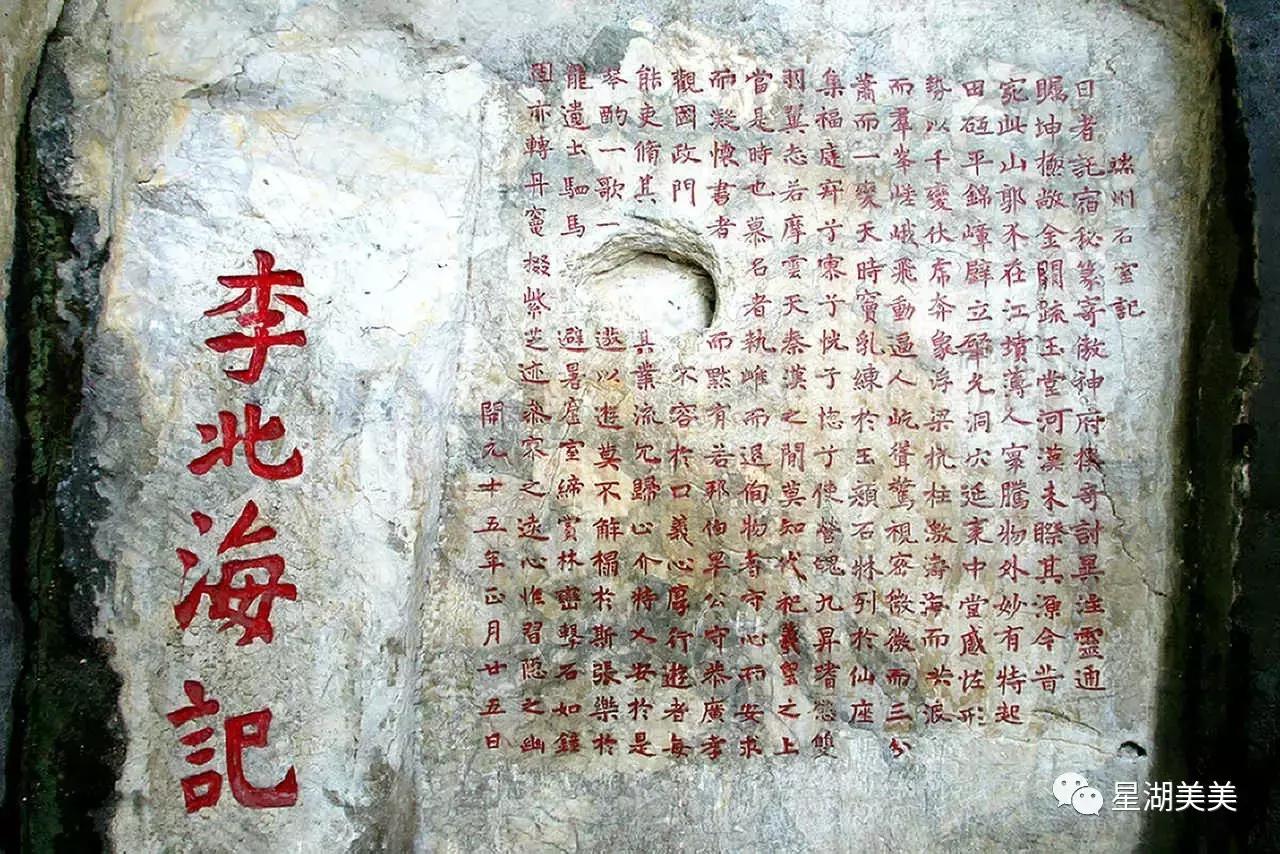 端州石室記
日者託宿秘篆寄傲神府棲奇討異注靈通
矚坤極敞金闕疏玉堂河漢未睽其源今昔
宛此山郭不在江壖薄人寰騰物外妙有特起
田砥平錦嶂壁立 洞穴延袤中堂盛怪形
勢以千變伏虎奔象浮梁抗柱激海而 浪
而羣峯嵯峨飛動逼人屹聳驚視密微微而三分
蕭而一變天時竇乳練於玉頽石牀列於仙座
集福庭窅兮㝠兮恍兮惚兮使營魄九昇嗜慾雙
羽翼志若摩雲天秦漢之間莫知代祀羲皇之上
當是時也慕名者執雌而退徇物者守心而安求
而凝懷書者而默有若邦伯畢公守恭廣孝
觀國政門不容於口義心厚行遊者每
能吏脩其其業流冗歸心介特乂安於是
琴酌一歌一遨以遊莫不解榻於斯張樂於
龍遺土駟馬避暑虛室締賞林巒擊石如鐘
固亦轉丹竈掇紫芝迹參寥之遠心惟習隱之幽
開元十五年正月廿五日
李北海記
星湖美美